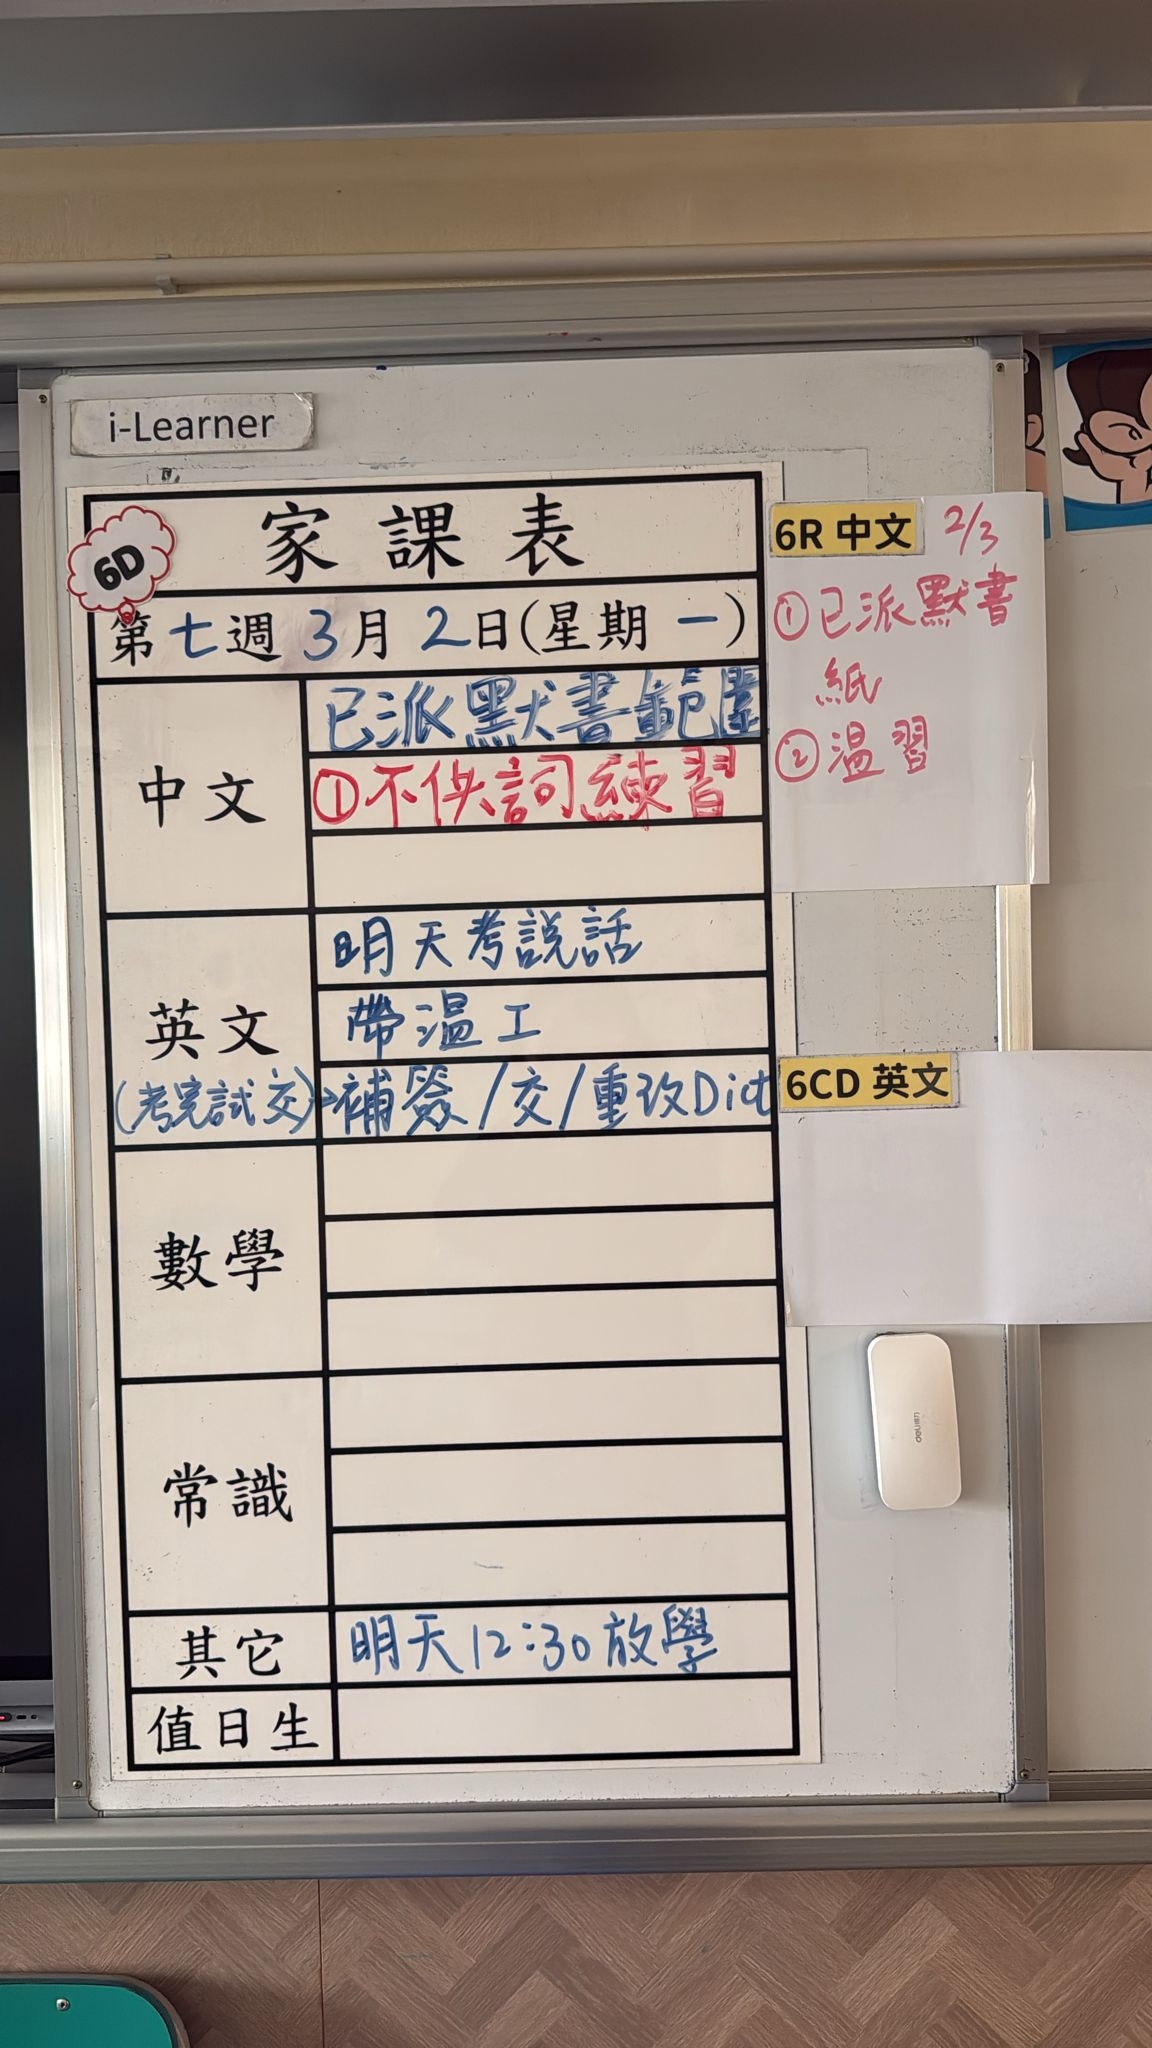 i-Learner
6D
家課表
第七週3月2日(星期一)
中文
已派默書範圍
①不供詞練習
英文
(考完試交)→
明天考說話
帶溫工
補簽/交/重改Dict
數學
常識
其它
明天12:30放學
值日生
6R 中文
2/3
①已派默書
紙
②溫習
6CD 英文
deli得力